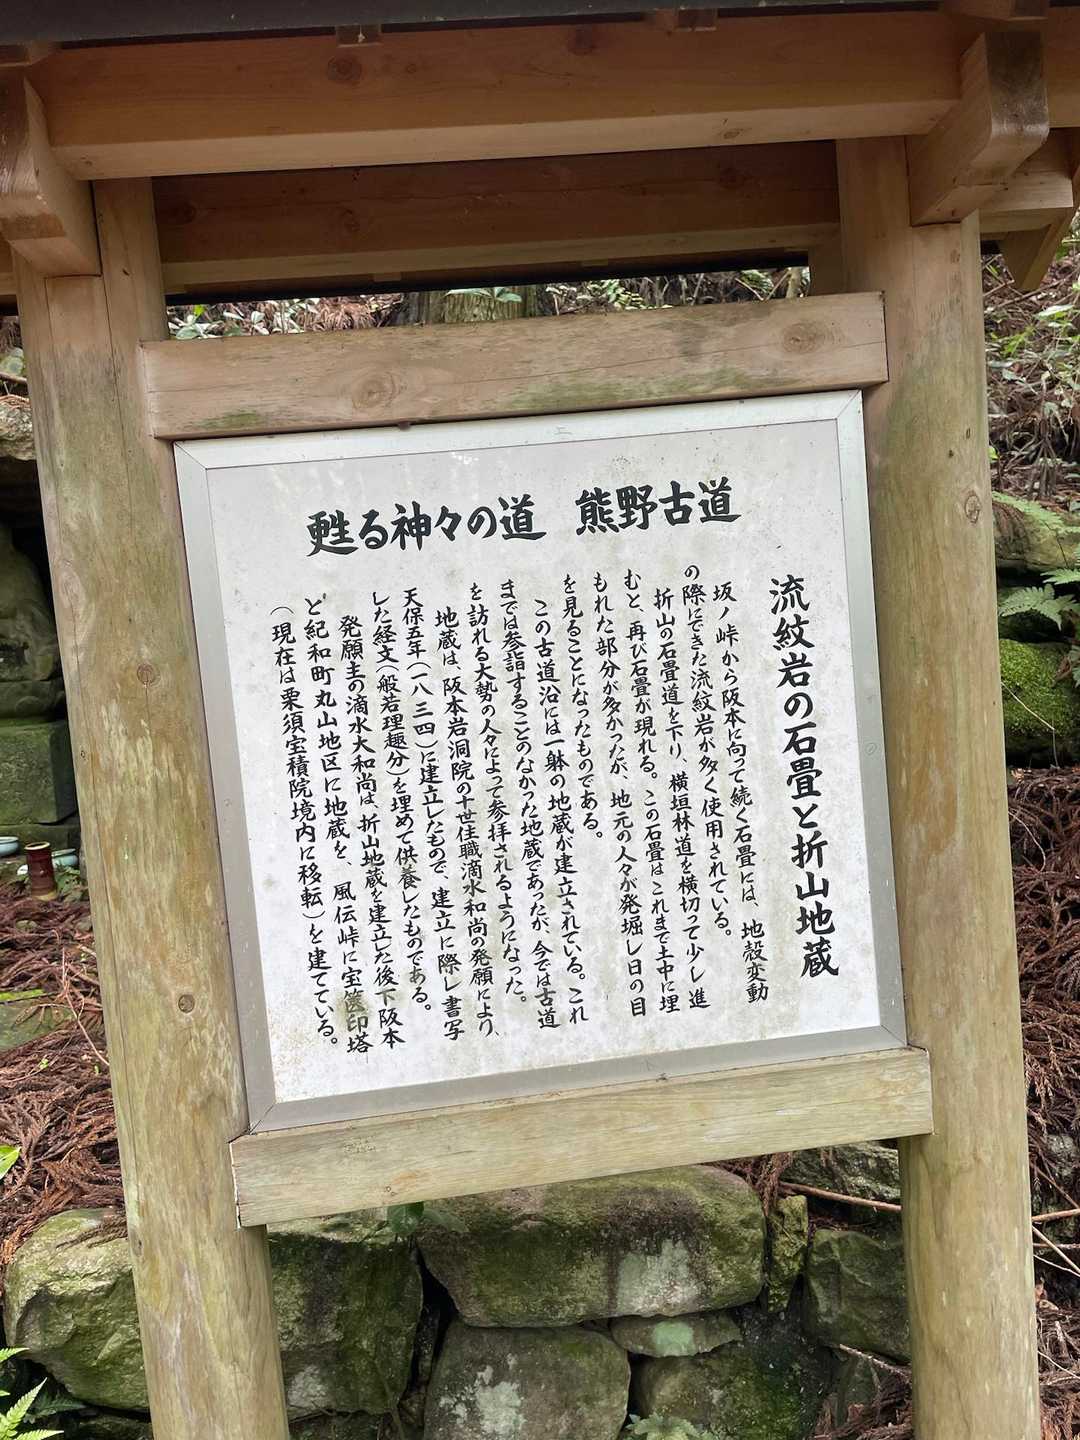 甦る神々の道　熊野古道
流紋岩の石畳と折山地蔵
坂ノ峠から阪本に向って続く石畳には、地殻変動
の際にできた流紋岩が多く使用されている。
折山の石畳道を下り、横垣林道を横切って少し進
むと、再び石畳が現れる。この石畳はこれまで土中に埋
もれた部分が多かったが、地元の人々が発掘し日の目
を見ることになったものである。
この古道沿には一躰の地蔵が建立されている。これ
までは参詣することのなかった地蔵であったが、今では古道
を訪れる大勢の人々によって参拝されるようになった。
地蔵は、阪本岩洞院の十世住職滴水和尚の発願により、
天保五年（一八三四）に建立したもので、建立に際し書写
した経文（般若理趣分）を埋めて供養したものである。
発願主の滴水大和尚は、折山地蔵を建立した後下阪本
と紀和町丸山地区に地蔵を、風伝峠に宝篋印塔
（現在は栗須宝積院境内に移転）を建てている。